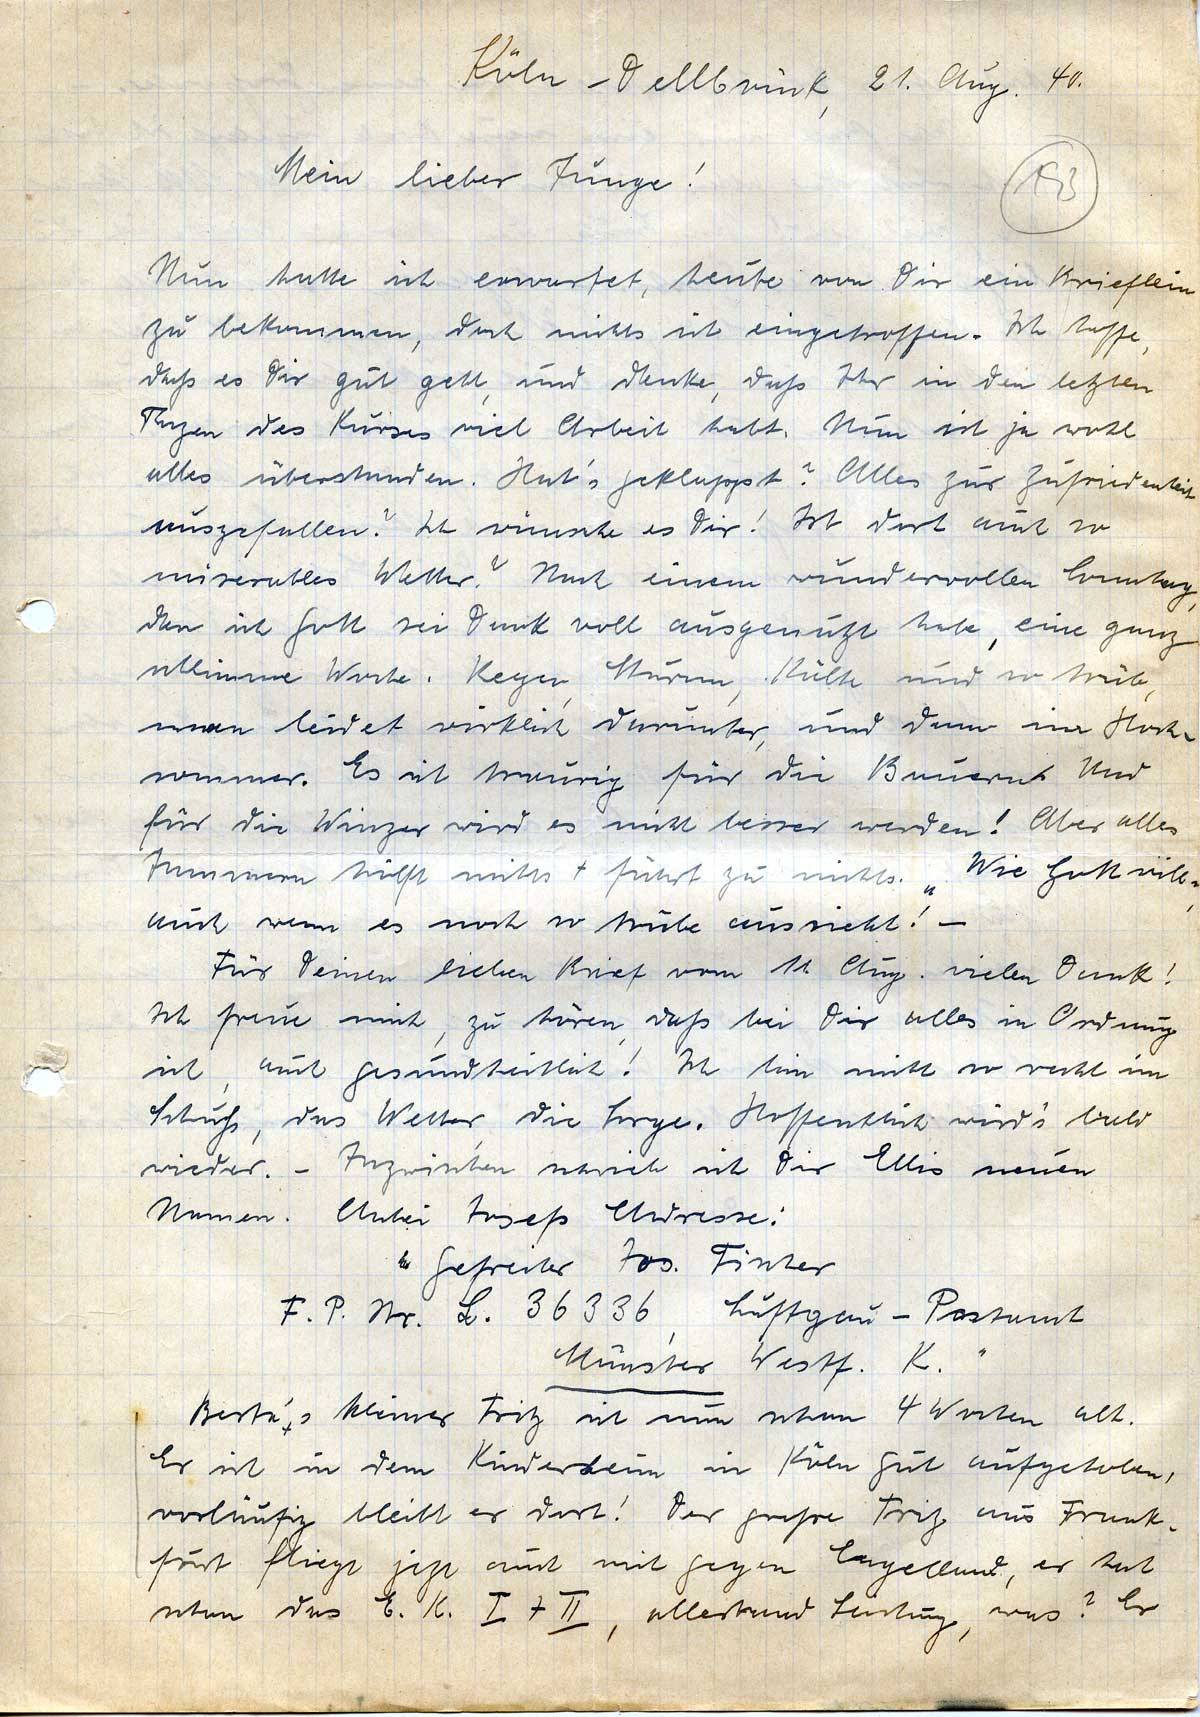 Köln-Dellbrück, 21. Aug. 40.
Mein lieber Junge!
Nun hatte ich erwartet, heute von Dir ein Brieflein
zu bekommen, doch nichts ist eingetroffen. Ich hoffe,
daß es Dir gut geht, und denke, daß Ihr in den letzten
Tagen des Kurses viel Arbeit habt. Nun ist ja wohl
alles überstanden. Hat's geklappt? Alles zur Zufriedenheit
ausgefallen? Ich wünsche es Dir! Ist dort auch so
miserables Wetter? Nach einem wundervollen Sonntag,
den ich Gott sei Dank voll ausgenützt habe, eine ganz
schlimme Woche. Regen, Sturm, Kälte und so trübe,
man leidet wirklich darunter, und dann im Hoch-
sommer. Es ist traurig für die Bauern! Und
für die Winzer wird es nicht besser werden! Aber alles
Jammern hilft nichts + führt zu nichts. „Wie Gott will",
auch wenn es noch so trübe aussieht! —
Für Deinen lieben Brief vom 11. Aug. vielen Dank!
Ich freue mich, zu hören, daß bei Dir alles in Ordnung
ist, auch gesundheitlich! Ich bin nicht so recht im
Schuß, das Wetter, die Sorge. Hoffentlich wird's bald
wieder. - Inzwischen schrieb ich Dir Ellis neuen
Namen. Anbei Josefs Adresse:
„Gefreiter Jos. Fischer
F. P. Nr. L. 36336, Luftgau-Postamt
Münster Westf. K."
Berta's kleiner Fritz ist nun schon 4 Wochen alt.
Er ist in dem Kinderheim in Köln gut aufgehoben,
vorläufig bleibt er dort! Der große Fritz aus Frank-
furt fliegt jetzt auch mit gegen Engelland, er hat
schon das E. K. I + II, allerhand Leistung, was? Er